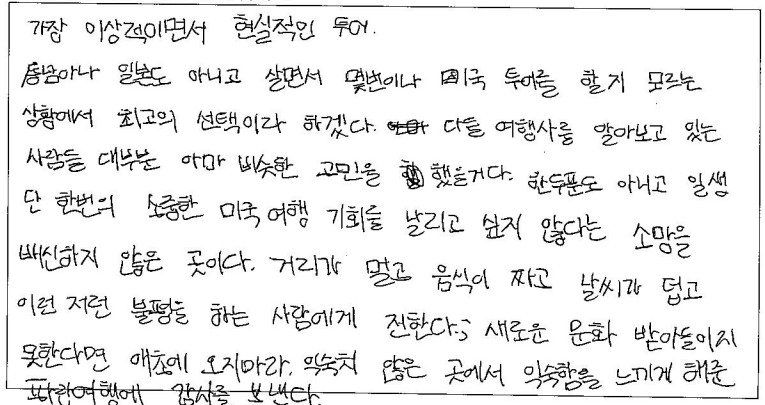 가장 이상적이면서 현실적인 투어.
동남아나 일본도 아니고 살면서 몇번이나 미국 투어를 할지 모르는
상황에서 최고의 선택이라 하겠다. 다들 여행사를 알아보고 있는
사람들 대부분 아마 비슷한 고민을 했을거다. 한두푼도 아니고 일생
단 한번의 소중한 미국여행 기회를 날리고 싶지 않다는 소망을
배신하지 않은 곳이다. 거리가 멀고 음식이 짜고 날씨가 덥고
이런 저런 불평들 하는 사람에게 전한다; 새로운 문화 받아들이지
못한다면 애초에 오지마라. 익숙치 않은 곳에서 익숙함을 느끼게 해준
파란여행에 감사를 보낸다.